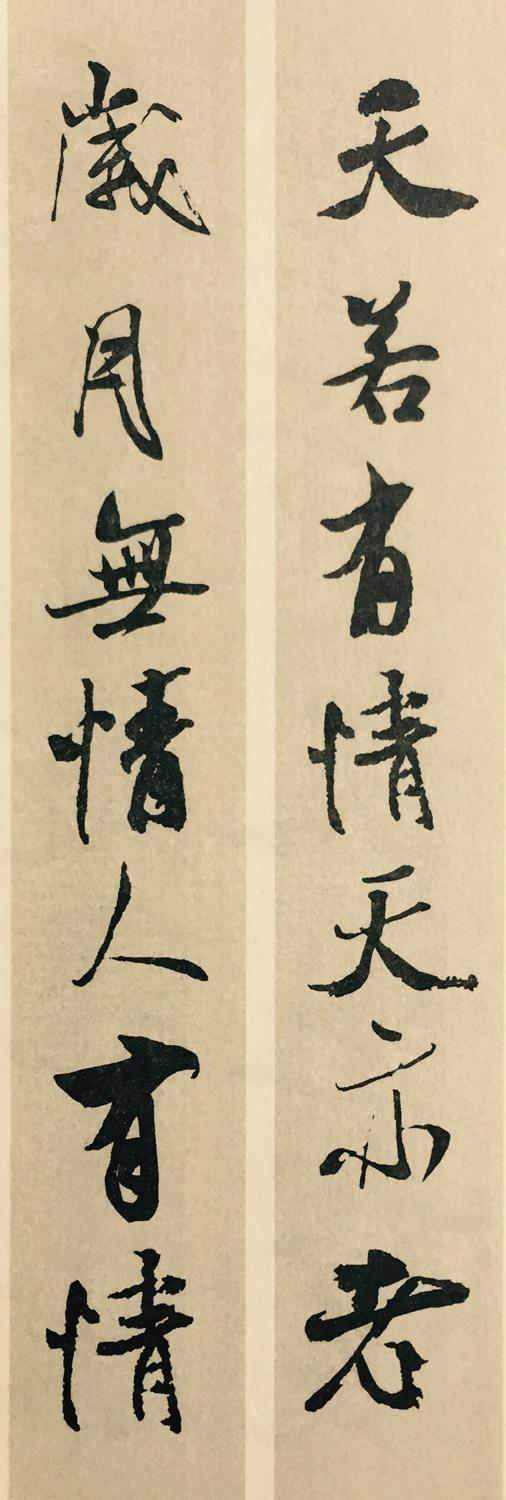 天若有情天亦老
歲月無情人有情